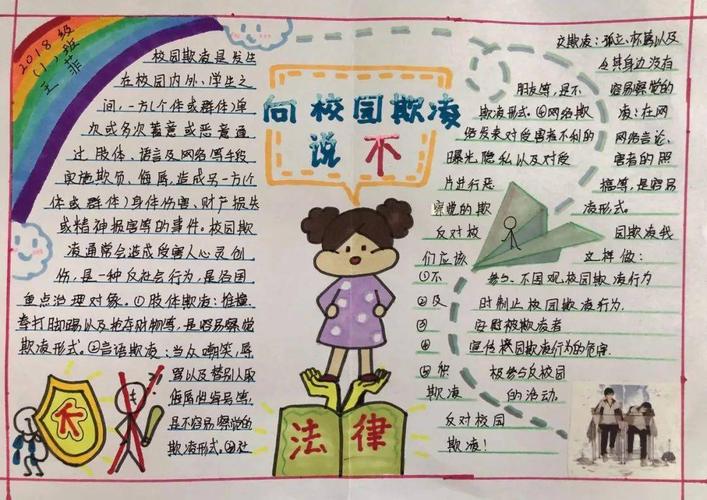 2018级
(1)班
王菲
校园欺凌是发生
在校园内外、学生之
间,一方(个体或群体)单
次或多次蓄意或恶意通
过 肢体、语言及网络等手段
实施欺负、侮辱,造成另一方(个
体或群体)身体伤害、财产损失
或精神损害等的事件。校园欺
凌通常会造成受害人心灵创
伤,是一种反社会行为,是各国
重点治理对象。①肢体欺凌:推撞、
拳打脚踢以及抢夺财物等,是容易察觉
欺凌形式。②言语欺凌:当众嘲笑、辱
骂以及替别人取
侮辱性绰号等,
是不容易察觉的
欺凌形式。③社
向校园欺凌
说不
法律
交欺凌:孤立、杯葛以及
令其身边没有
朋友等,是不 容易察觉的
欺凌形式。④网络欺 凌:在网
络发表对受害者不利的 网络言论、
曝光隐私以及对受 害者的照
片进行恶 搞等,是容易
察觉的欺 凌形式。
反对校 园欺凌我
们应该 这样做:
①不 参与、不围观校园欺凌行为
②及 时制止校园欺凌行为.
③ 安慰被欺凌者
④ 宣传校园欺凌行为的危害.
⑤积 极参与反校园
欺凌 的活动.
反对校园
欺凌!